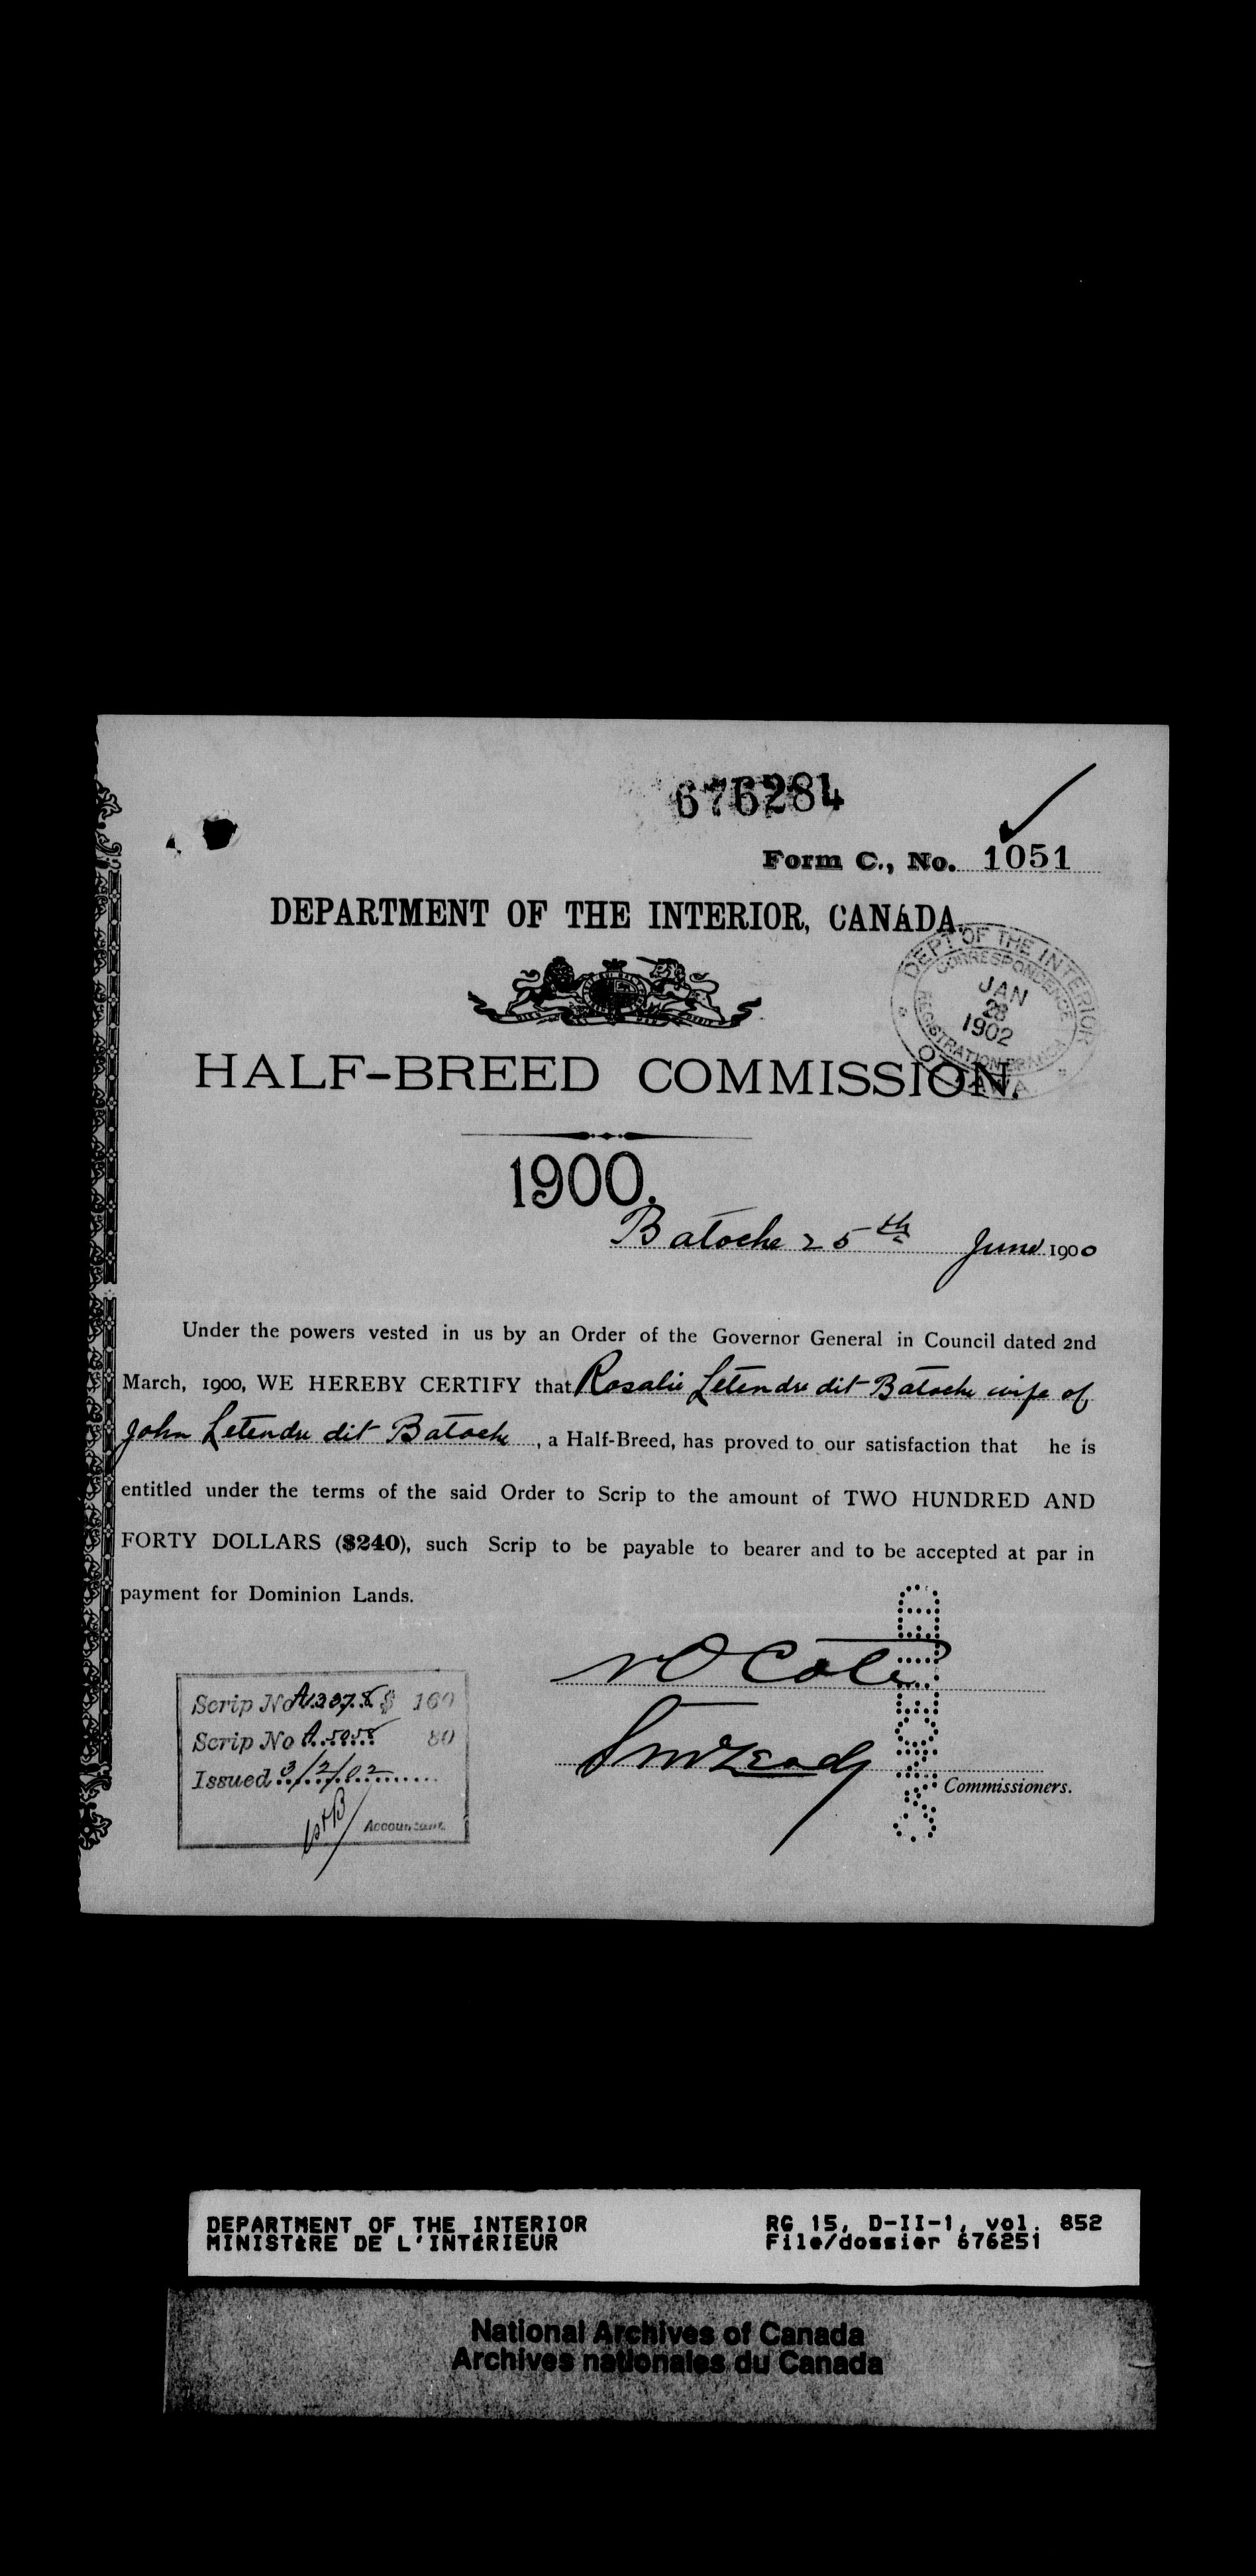 676284
Form C., No. 1051
DEPARTMENT OF THE INTERIOR, CANADA.
DEPT OF THE INTERIOR
CORRESPONDENCE
JAN
28
1902
REGISTRATION BRANCH
OTTAWA
HALF-BREED COMMISSION.
1900.
Batoche 25th June 1900
Under the powers vested in us by an Order of the Governor General in Council dated 2nd
March, 1900, WE HEREBY CERTIFY that Rosalie Letendre dit Batoche wife of
John Letendre dit Batoche, a Half-Breed, has proved to our satisfaction that he is
entitled under the terms of the said Order to Scrip to the amount of TWO HUNDRED AND
FORTY DOLLARS ($240), such Scrip to be payable to bearer and to be accepted at par in
payment for Dominion Lands.
Scrip No A.3078 $ 160
Scrip No A.5058 80
Issued 3/2/02
Accountant
Commissioners.
DEPARTMENT OF THE INTERIOR
MINISTÈRE DE L'INTÉRIEUR
RG 15, D-II-1, vol. 852
File/dossier 676251
National Archives of Canada
Archives nationales du Canada